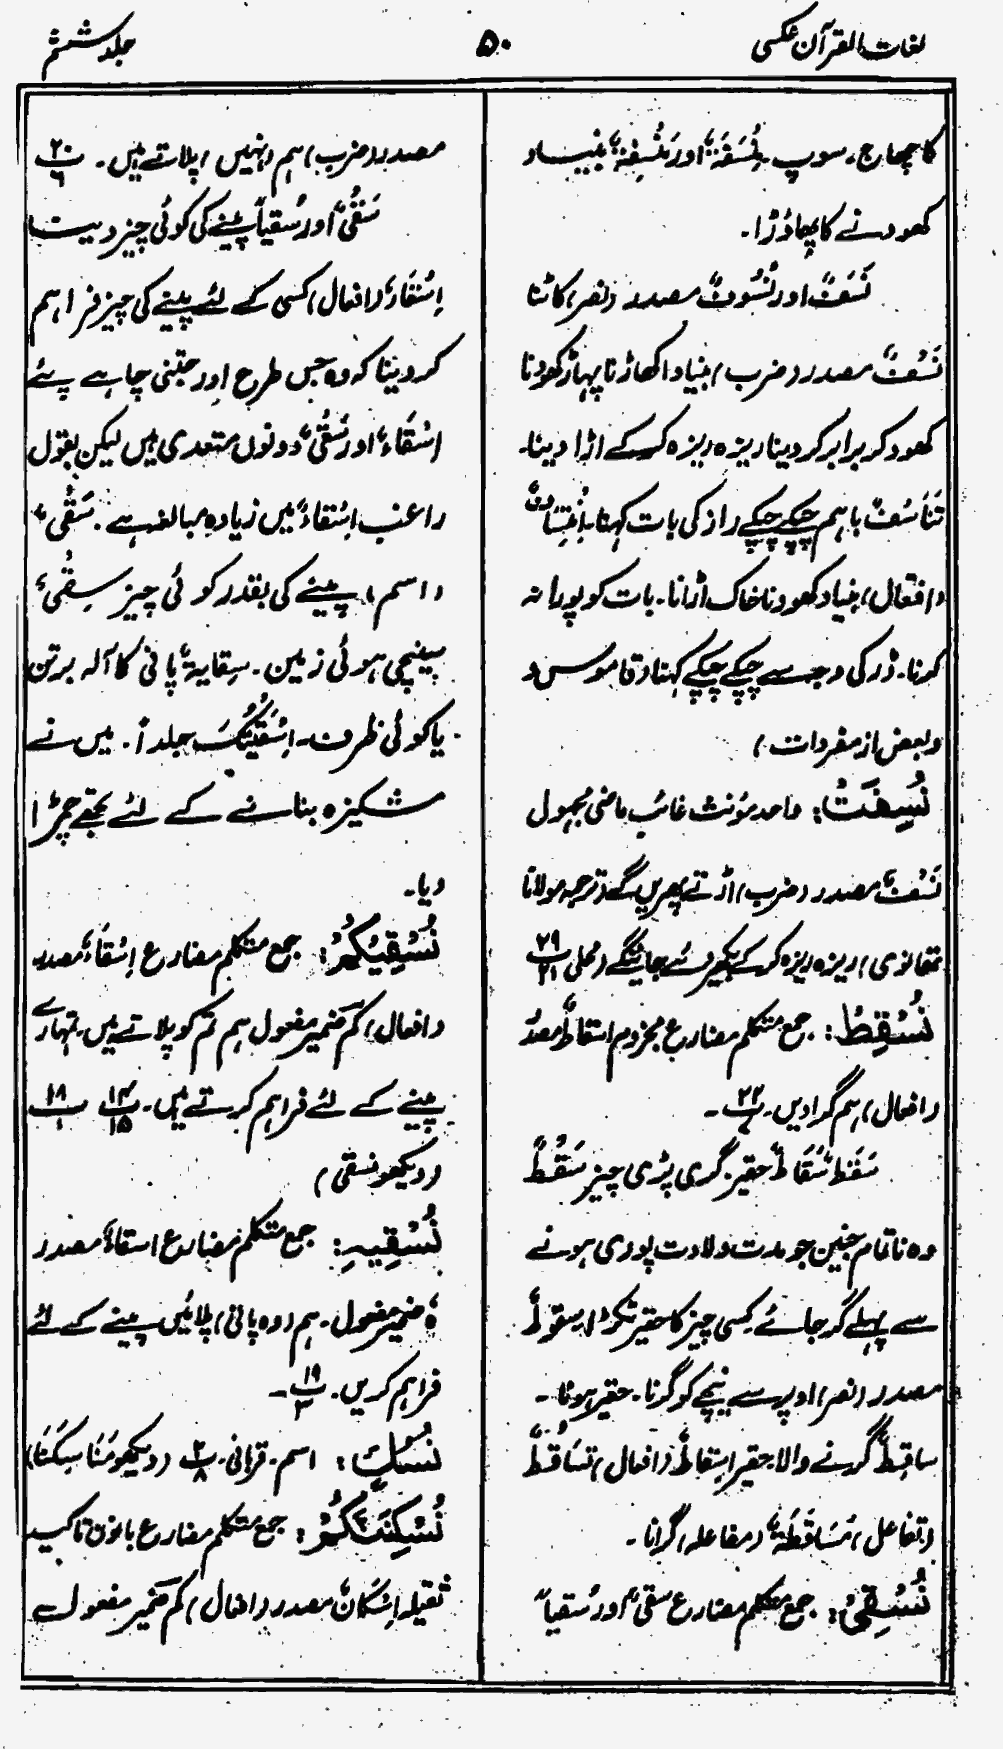 لغات القرآن عکسی
۵۰
جلد ششم
کا چھاج۔ سوپ۔ نُسَفَۃٌ اور نُسِفَۃٌ بنیاد
کھودنے کا پھاؤڑا۔
نَسَفٌ اور نُسُوفٌ مصدر (نصر) کاٹنا
نَسْفٌ مصدر (ضرب) بنیاد اکھاڑنا پہاڑ کھودنا
کھود کر برابر کر دینا ریزہ ریزہ کر کے اڑا دینا۔
تَنَاسُفٌ باہم چپکے چپکے راز کی بات کہنا
(افتعال) بنیاد کھودنا خاک اڑانا۔ بات کو پورا نہ
کرنا۔ ڈر کی وجہ سے چپکے چپکے کہنا (قاموس و
و بعض از مفردات)
نُسِفَتْ: واحد مؤنث غائب ماضی مجہول
نَسْفٌ مصدر (ضرب) اڑتے پھریں گے (ترجمہ مولانا
تھانوی) ریزہ ریزہ کر کے بکھیر دئے جائینگے (محلی) پ ۲۹ ۲۱
نُسْقِطْ: جمع متکلم مضارع مجزوم اسقاطٌ مصدر
(افعال) ہم گرا دیں۔ پ ۲۲
سَقَطٌ سُقَاطٌ حقیر۔ گری پڑی چیز سَقْطٌ
وہ ناتمام جنین جو مدت ولادت پوری ہونے
سے پہلے گر جائے کسی چیز کا حقیر ٹکڑا۔ سقوطٌ
مصدر (نصر) اوپر سے نیچے کو گرنا۔ حقیر ہونا۔
ساقِطٌ گرنے والا حقیر اِسقاطٌ (افعال) تَسَاقُطٌ
(تفاعل) مُسَاقَطَۃٌ (مفاعلہ) گرانا۔
نُسْقِیْ: جمع متکلم مضارع سقیٌ اور سُقیاً
مصدر (ضرب) ہم (نہیں) پلاتے ہیں۔ پ ۲۰ ۶
سَقْیٌ اور سُقیاً پینے کی کوئی چیز دینا
اِسْقَاءٌ (افعال) کسی کے لئے پینے کی چیز فراہم
کر دینا کہ وہ جس طرح اور جتنی چاہے پئے
اسْقَاءٌ اور سَقْیٌ دونوں متعدی ہیں لیکن بقول
راغب اسْقاءٌ میں زیادہ مبالغہ ہے۔ سَقْیٌ
(اسم) پینے کی بقدر کوئی چیز سِقْیٌ
سینچی ہوئی زمین۔ سِقایۃٌ پانی کا آلہ برتن
یا کوئی ظرف۔ اسْقَیْتُکَ جلداً۔ میں نے
مشکیزہ بنانے کے لئے تجھے چمڑا
دیا۔
نُسْقِیْکُمْ: جمع متکلم مضارع اِسْقاءٌ مصدر
(افعال) کُم ضمیر مفعول ہم تم کو پلاتے ہیں۔ تمہارے
پینے کے لئے فراہم کرتے ہیں۔ پ ۱۴ ۱۵ پ ۱۸ ۱
(دیکھو نسقی)
نُسْقِیَہٖ: جمع متکلم مضارع اسقاءٌ مصدر
ہٗ ضمیر مفعول۔ ہم (وہ پانی) پلائیں پینے کے لئے
فراہم کریں۔ پ ۱۹ ۳۔
نُسُکٍ: اسم۔ قربانی۔ پ ۲ ۸ (دیکھو مَنَاسِکَنَا)
نُسْکِنَنَّکُمْ: جمع متکلم مضارع بانون تاکید
ثقیلہ اِسْکانٌ مصدر (افعال) کُم ضمیر مفعول ہے